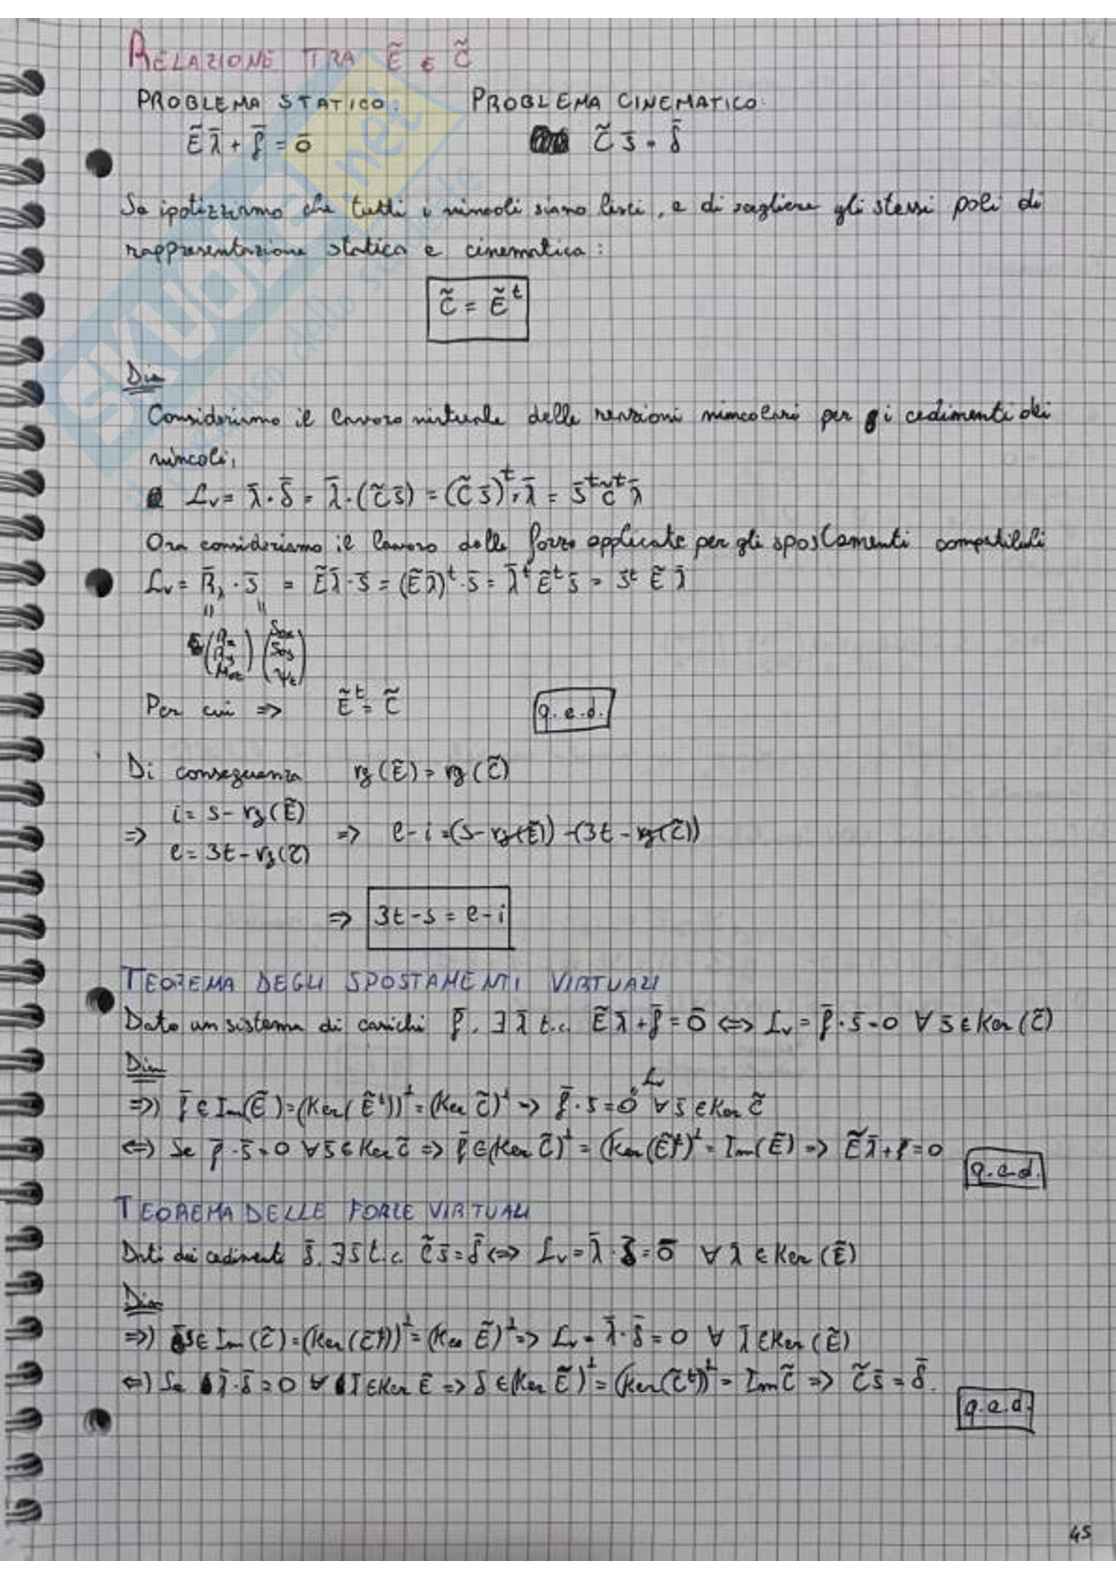 RELAZIONE TRA Ẽ E C̃
PROBLEMA STATICO: PROBLEMA CINEMATICO:
Ẽ λ̄ + f̄ = ō C̃ s̄ = δ̄
Se ipotizziamo che tutti i vincoli siano lisci, e di scegliere gli stessi poli di
rappresentazione statica e cinematica:
C̃ = Ẽᵗ
Dim
Consideriamo il lavoro virtuale delle reazioni vincolari per i cedimenti dei
vincoli,
Lv = λ̄ · δ̄ = λ̄ · (C̃ s̄) = (C̃ s̄)ᵗ · λ̄ = s̄ᵗ C̃ᵗ λ̄
Ora consideriamo il lavoro delle forze applicate per gli spostamenti compatibili
Lv = R̄λ · s̄ = Ẽ λ̄ · s̄ = (Ẽ λ̄)ᵗ · s̄ = λ̄ᵗ Ẽᵗ s̄ = s̄ᵗ Ẽ λ̄
Per cui => Ẽᵗ = C̃ q.e.d.
Di conseguenza rg(Ẽ) = rg(C̃)
i = s - rg(Ẽ)
=> => e - i = (s - rg(Ẽ)) - (3t - rg(C̃))
e = 3t - rg(C̃)
=> 3t - s = e - i
TEOREMA DEGLI SPOSTAMENTI VIRTUALI
Dato un sistema di carichi f̄, ∃ λ̄ t.c. Ẽ λ̄ + f̄ = ō <=> Lv = f̄ · s̄ = 0 ∀ s̄ ∈ Ker(C̃)
Dim
=>) f̄ ∈ Im(Ẽ) = (Ker(Ẽᵗ))^⊥ = (Ker C̃)^⊥ => f̄ · s̄ = 0 ∀ s̄ ∈ Ker C̃
Lv
<=) Se f̄ · s̄ = 0 ∀ s̄ ∈ Ker C̃ => f̄ ∈ (Ker C̃)^⊥ = (Ker(Ẽᵗ))^⊥ = Im(Ẽ) => Ẽ λ̄ + f = 0 q.e.d.
TEOREMA DELLE FORZE VIRTUALI
Dati dei cedimenti δ̄, ∃ s̄ t.c. C̃ s̄ = δ̄ <=> Lv = λ̄ · δ̄ = ō ∀ λ̄ ∈ Ker(Ẽ)
Dim
=>) δ ∈ Im(C̃) = (Ker(C̃ᵗ))^⊥ = (Ker Ẽ)^⊥ => Lv = λ̄ · δ̄ = 0 ∀ λ̄ ∈ Ker(Ẽ)
<=) Se λ̄ · δ̄ = 0 ∀ λ̄ ∈ Ker Ẽ => δ ∈ (Ker Ẽ)^⊥ = (Ker(C̃ᵗ))^⊥ = Im C̃ => C̃ s̄ = δ̄. q.e.d.
45
SKUOLA.net